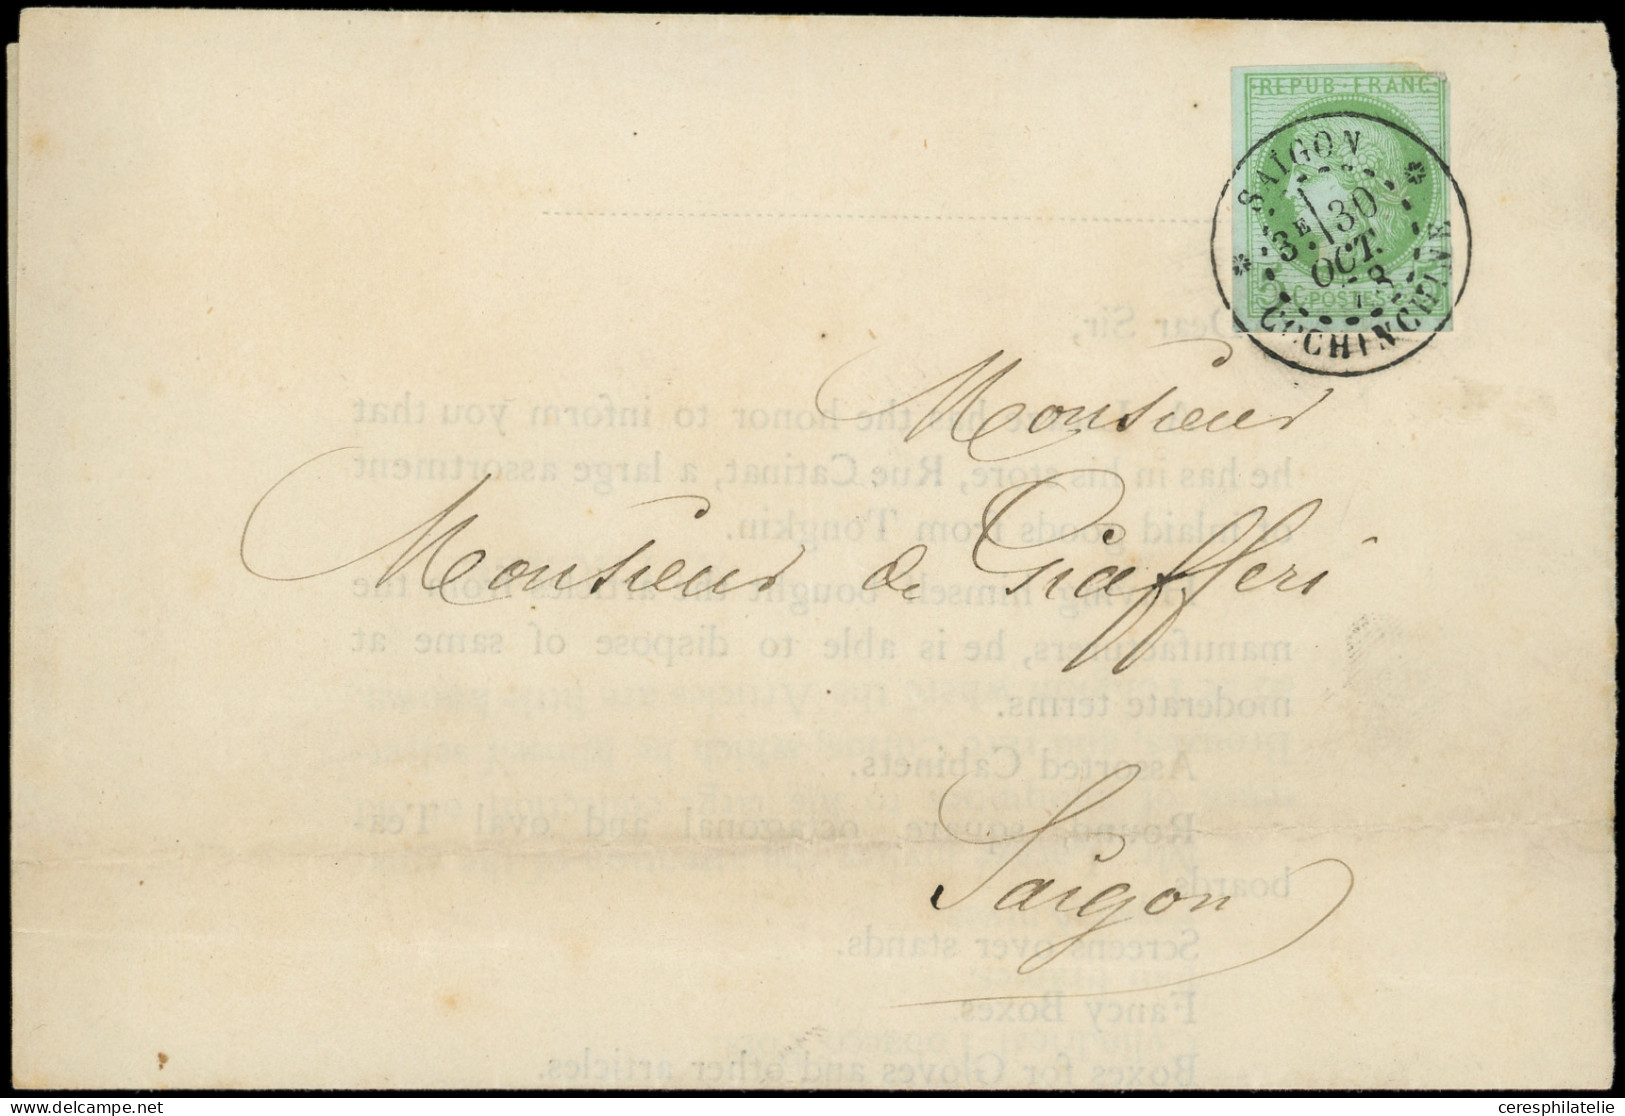 REPUB·FRANC
SAIGON
3E 30
OCT.
COCHINCHINE
5 C POSTES 5
Dear Sir,
Monsieur
has the honor to inform you that
he has in his store, Rue Catinat, a large assortment
of inlaid goods from Tongkin.
Monsieur de Giafferi
Having himself bought the articles from the
manufacturers, he is able to dispose of same at
moderate terms.
Assorted Cabinets.
Round, square, octagonal and oval Tea-
boards
Saigon
Screens over stands.
Fancy Boxes.
Boxes for Gloves and other articles.
ceresphilatelie